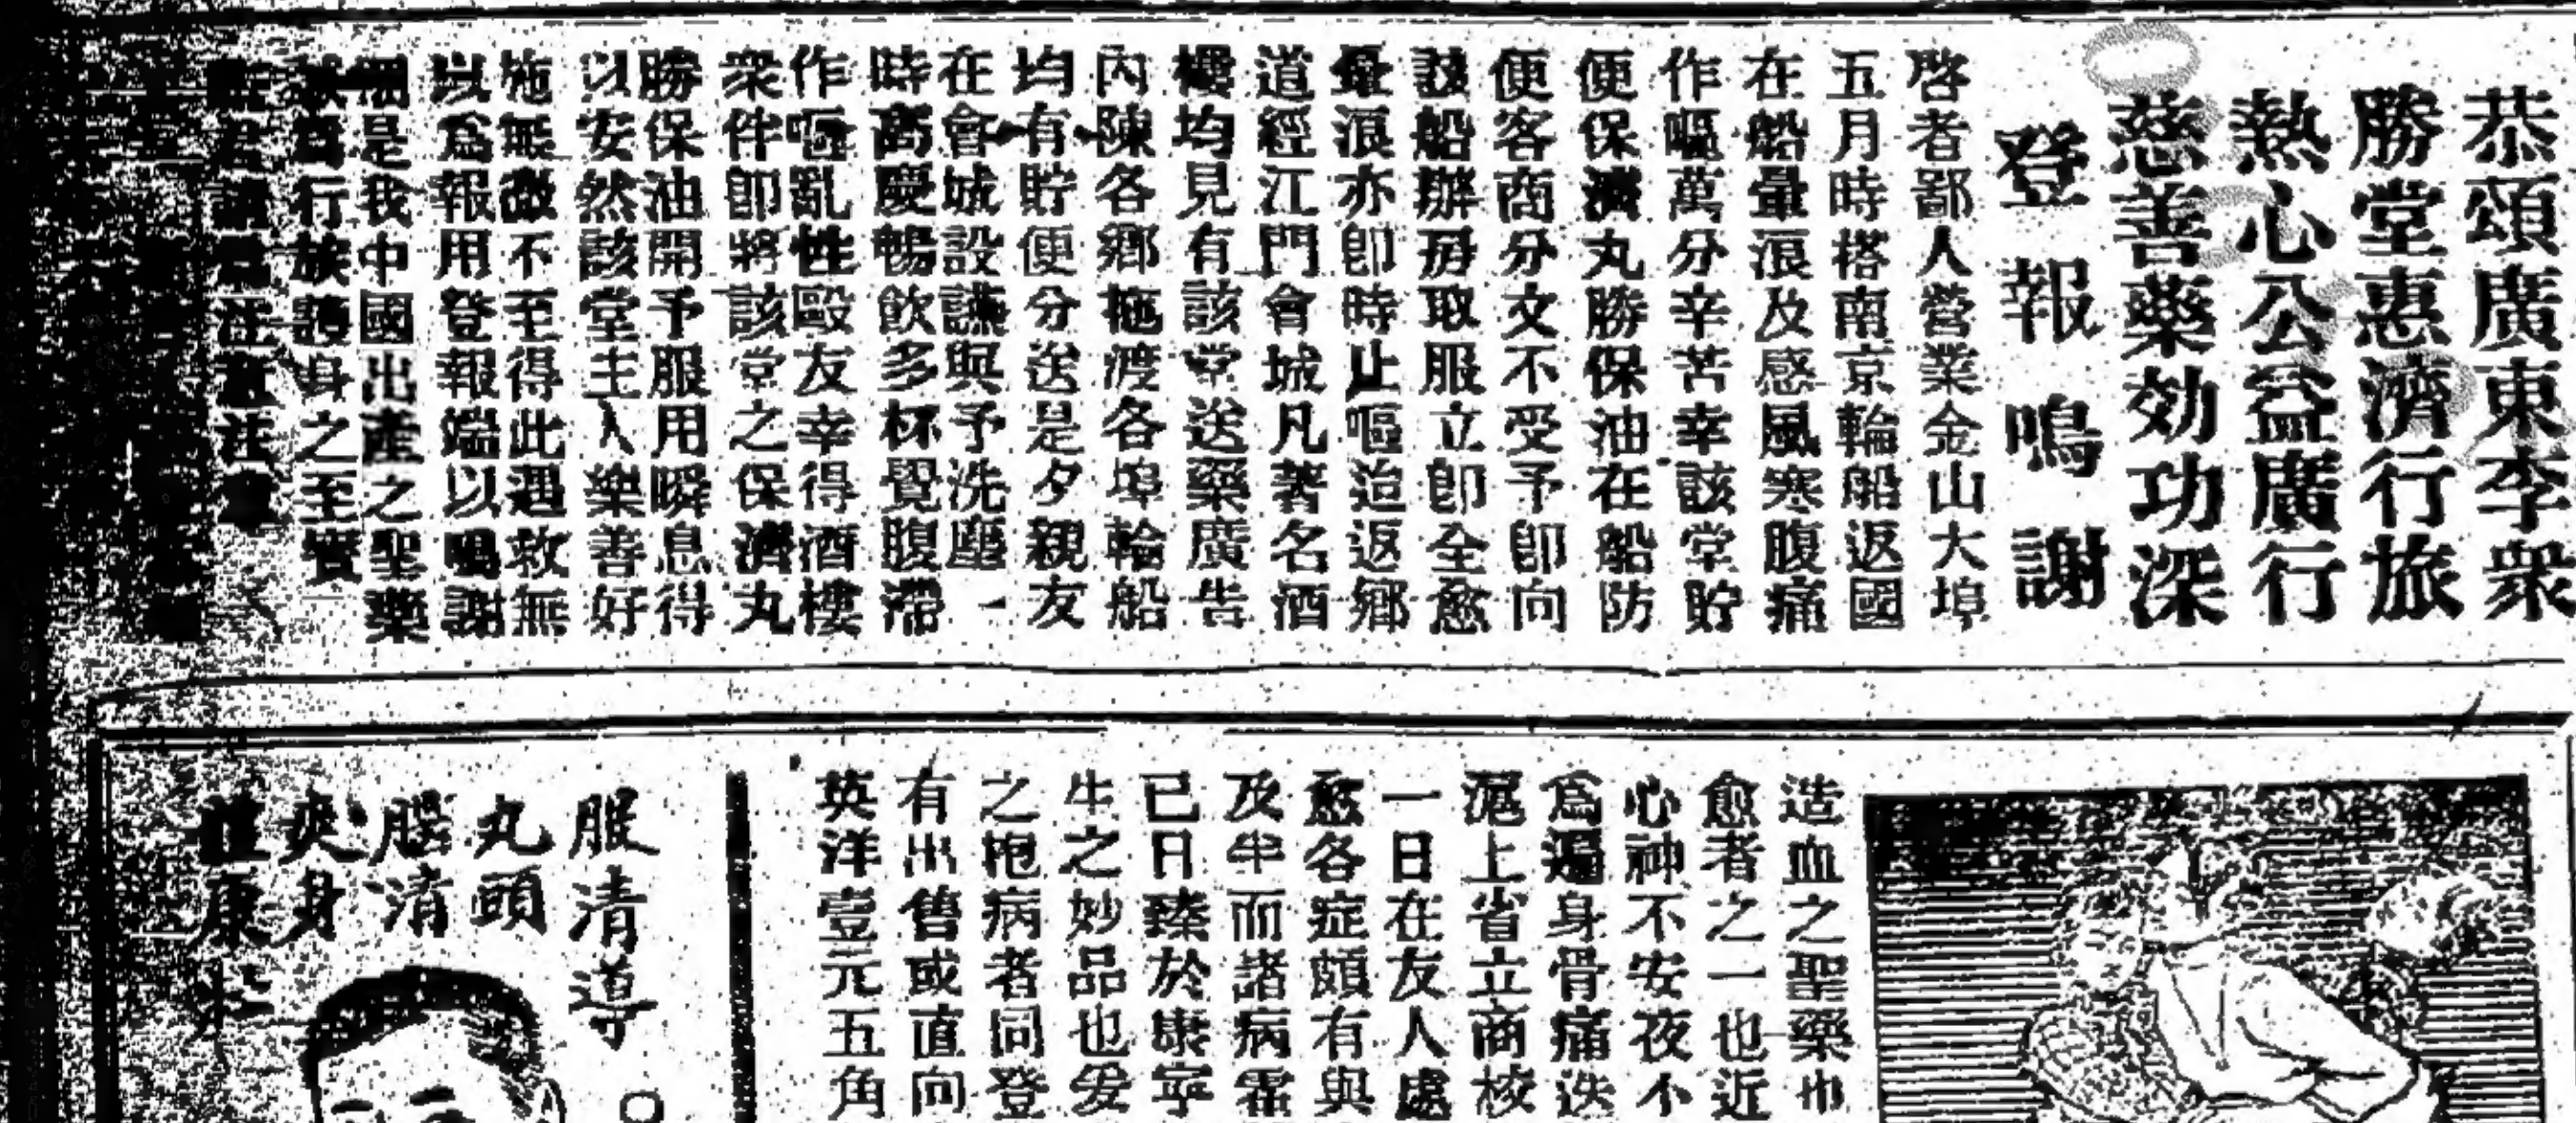 恭頌廣東李衆
勝堂惠濟行旅
熱心公益廣行
慈善藥効功深
登報鳴謝
啓者鄙人營業金山大埠
五月時搭南京輪船返國
在船暈浪及感風寒腹痛
作嘔萬分辛苦幸該堂貯
便保濟丸勝保油在船防
便客商分文不受予卽向
該船辦房取服立卽全愈
暈浪亦卽時止嘔迨返鄉
道經江門會城凡著名酒
樓均見有該堂送藥廣告
內陳各鄉拖渡各埠輪船
均有貯便分送是夕親友
在會城設讌與予洗塵一
時高慶暢飲多杯覺腹滯
作嘔亂性毆友幸得酒樓
衆伴卽將該堂之保濟丸
勝保油開予服用瞬息得
以安然該堂主人樂善好
施無微不至得此遇救無
以爲報用登報端以鳴謝
是我中國出產之聖藥
行旅護身之至寶
造血之聖藥也
愈者之一也近
心神不安夜不
爲遍身骨痛迭
滬上省立商校
一日在友人處
愈各症頗有與
及半而諸病霍
已日臻於康寧
生之妙品也爰
之抱病者同登
有出售或直向
英洋壹元五角
服清導
丸頭
腦清
爽身
康